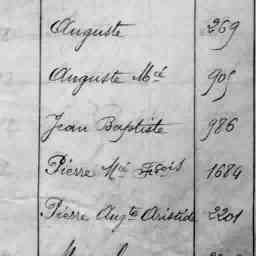 Auguste 269
Auguste Mié 905
Jean Baptiste 986
Pierre Mié Fçois 1684
Pierre Augte Aristide 2201